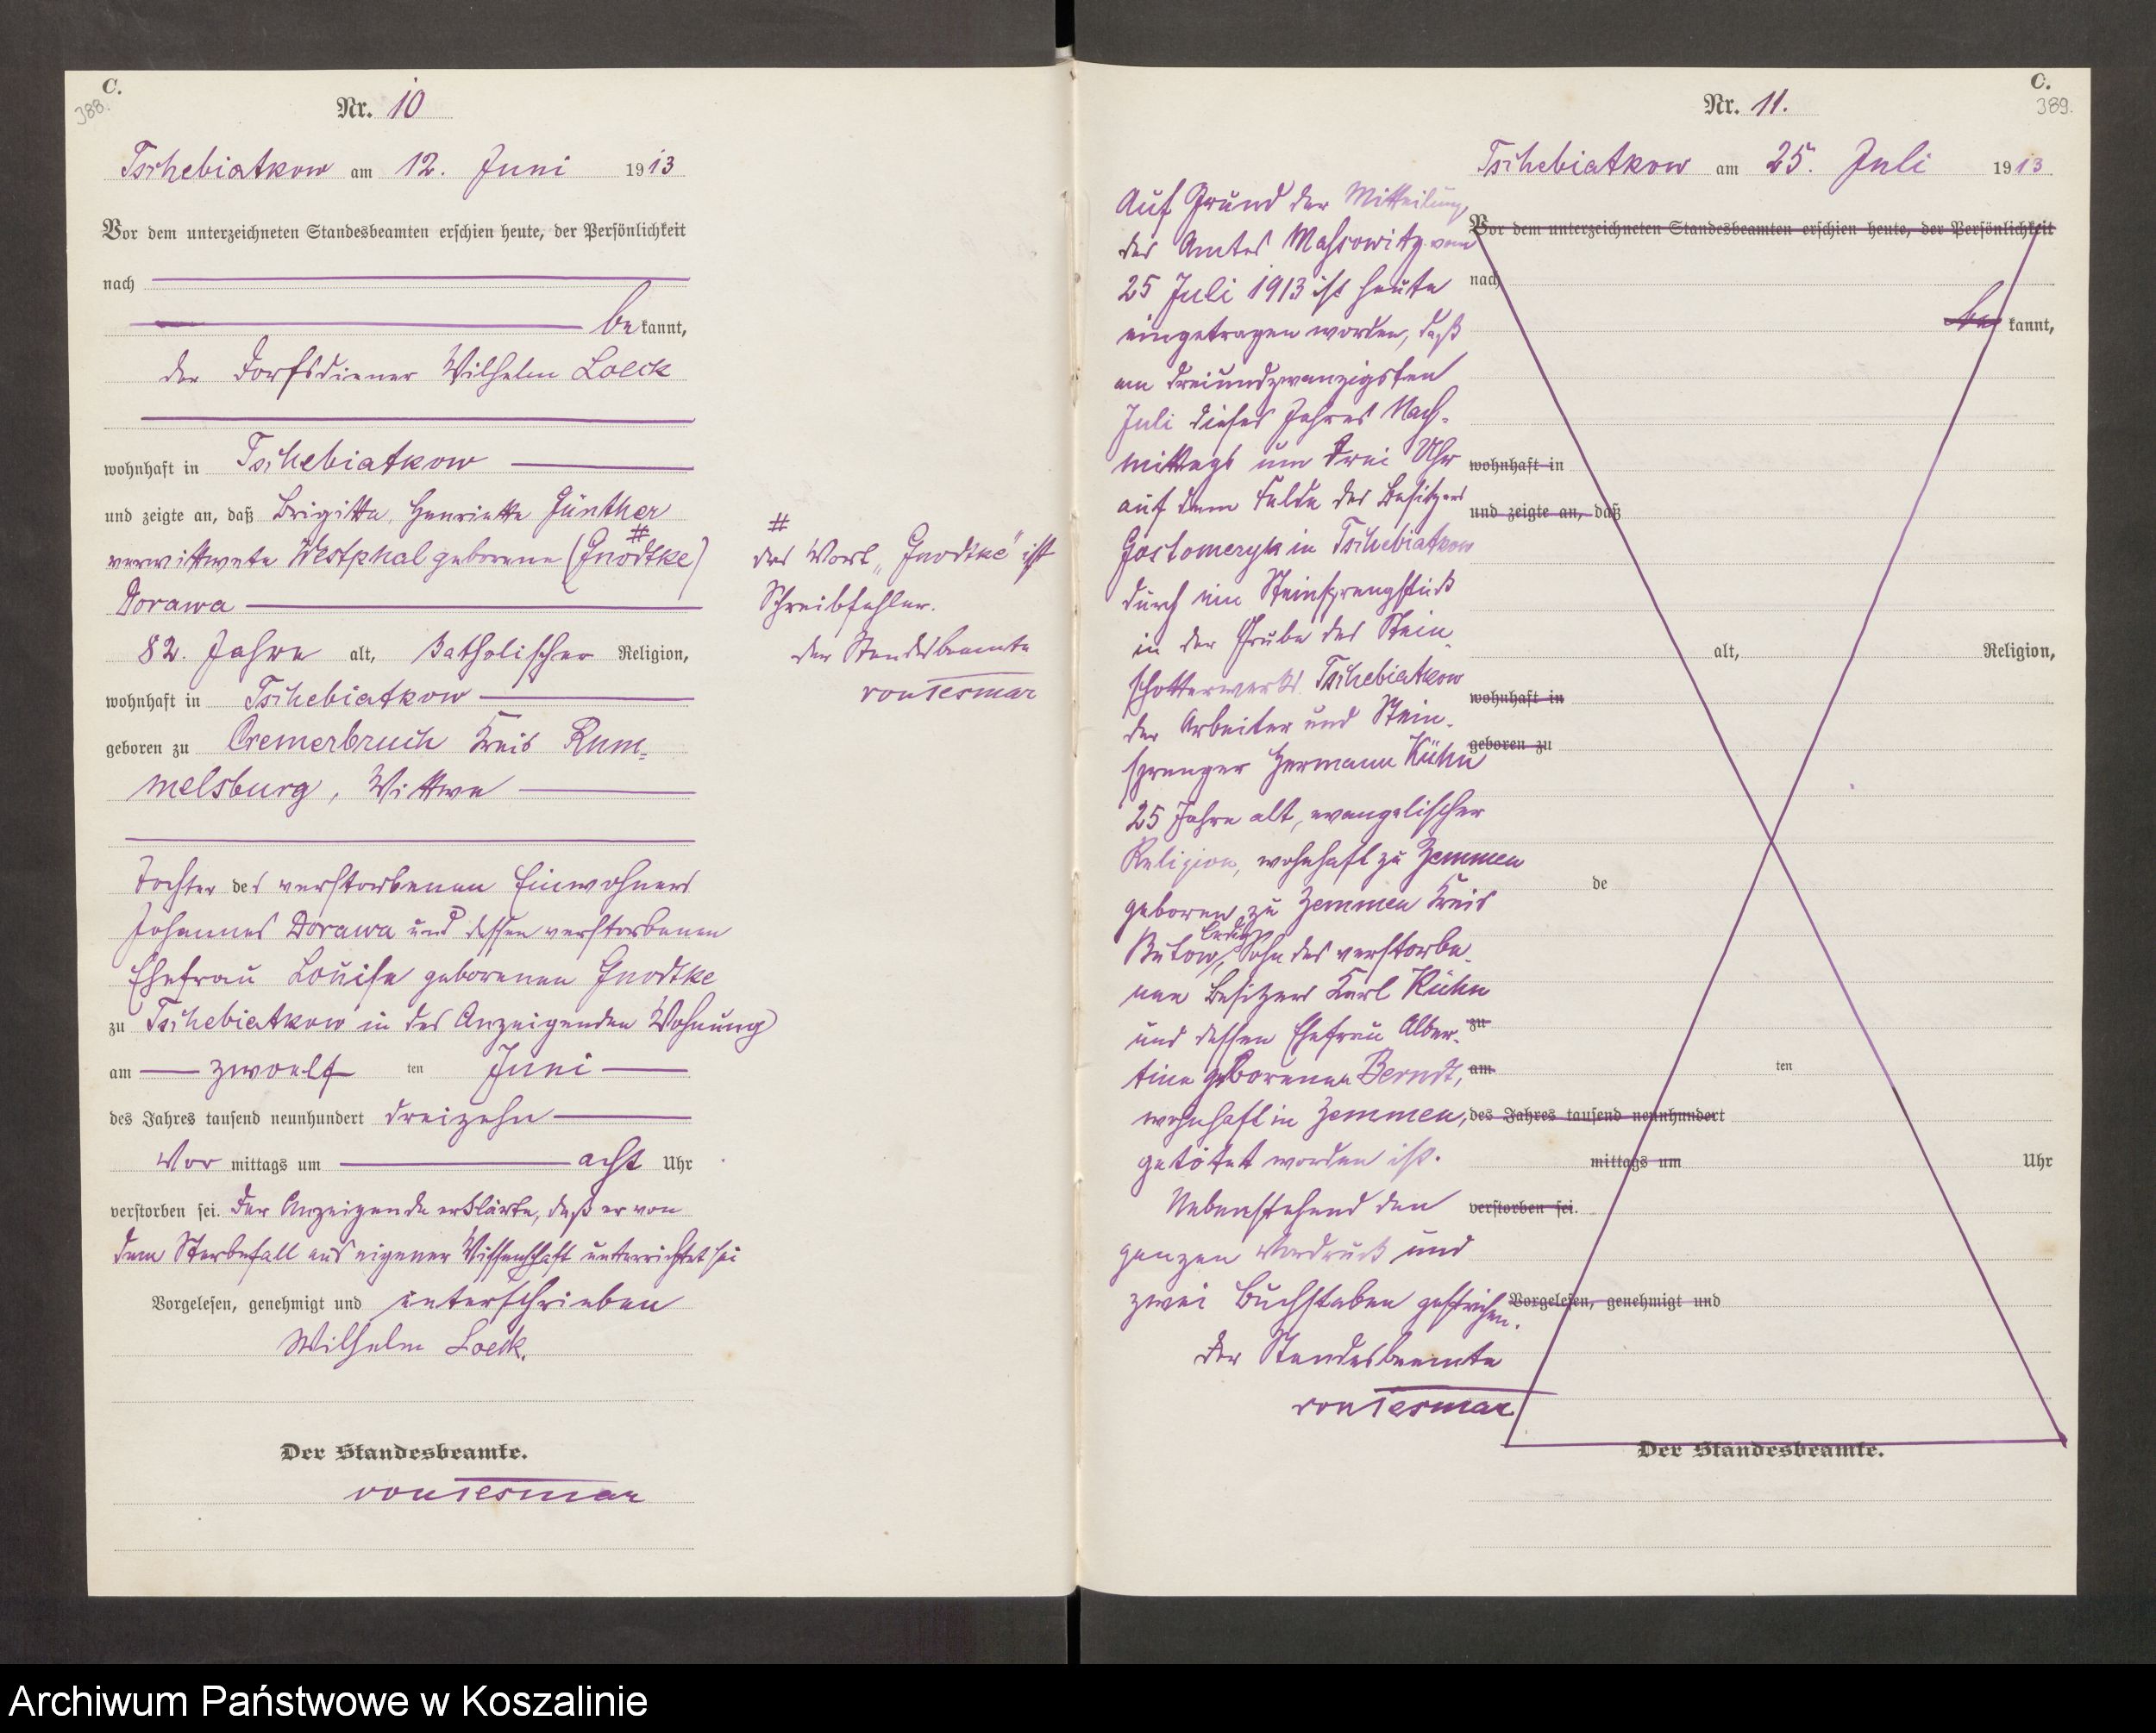 C.
388.
Nr. 10
Tschebiatkow am 12. Juni 1913
Vor dem unterzeichneten Standesbeamten erschien heute, der Persönlichkeit
nach
bekannt,
der Dorfsdiener Wilhelm Loeck
wohnhaft in Tschebiatkow
und zeigte an, daß Brigitta Henriette Günther
verwittwete Westphal geborene (Gnodtke) #
Dorawa
82. Jahre alt, katholischer Religion,
wohnhaft in Tschebiatkow
geboren zu Cremerbruch Kreis Rum=
melsburg, Wittwe
Tochter des verstorbenen Einwohners
Johannes Dorawa und dessen verstorbenen
Ehefrau Louise geborenen Gnodtke
zu Tschebiatkow in des Anzeigenden Wohnung
am zwoelf ten Juni
des Jahres tausend neunhundert dreizehn
Vor mittags um acht Uhr
verstorben sei. Der Anzeigende erklärte, daß er von
dem Sterbefall aus eigener Wissenschaft unterrichtet sei
Vorgelesen, genehmigt und unterschrieben
Wilhelm Loeck.
Der Standesbeamte.
von Tesmar
#
das Wort „Gnodtke" ist
Schreibfehler.
der Standesbeamte
von Tesmar
C.
389.
Nr. 11.
Tschebiatkow am 25. Juli 1913
Auf Grund der Mitteilung
des Amtes Massowitz vom
25 Juli 1913 ist heute
eingetragen worden, daß
am dreiundzwanzigsten
Juli dieses Jahres Nach=
mittags um drei Uhr
auf dem Felde des Besitzers
Gostomczyk in Tschebiatkow
durch ein Steinsprengstück
in der Grube des Stein
schotterwerks Tschebiatkow
der Arbeiter und Stein
sprenger Hermann Kühn
25 Jahre alt, evangelischer
Religion, wohnhaft zu Zemmen
geboren zu Zemmen Kreis
Bütow, ledig, Sohn des verstorbe
nen Besitzers Karl Kühn
und dessen Ehefrau Alber
tine geborenen Berndt,
wohnhaft in Zemmen,
getötet worden ist.
Nebenstehend den
ganzen Vordruck und
zwei Buchstaben gestrichen.
Der Standesbeamte
von Tesmar
Vor dem unterzeichneten Standesbeamten erschien heute, der Persönlichkeit
nach
be kannt,
wohnhaft in
und zeigte an, daß
alt, Religion,
wohnhaft in
geboren zu
de
zu
am ten
des Jahres tausend neunhundert
mittags um Uhr
verstorben sei.
Vorgelesen, genehmigt und
Der Standesbeamte.
Archiwum Państwowe w Koszalinie